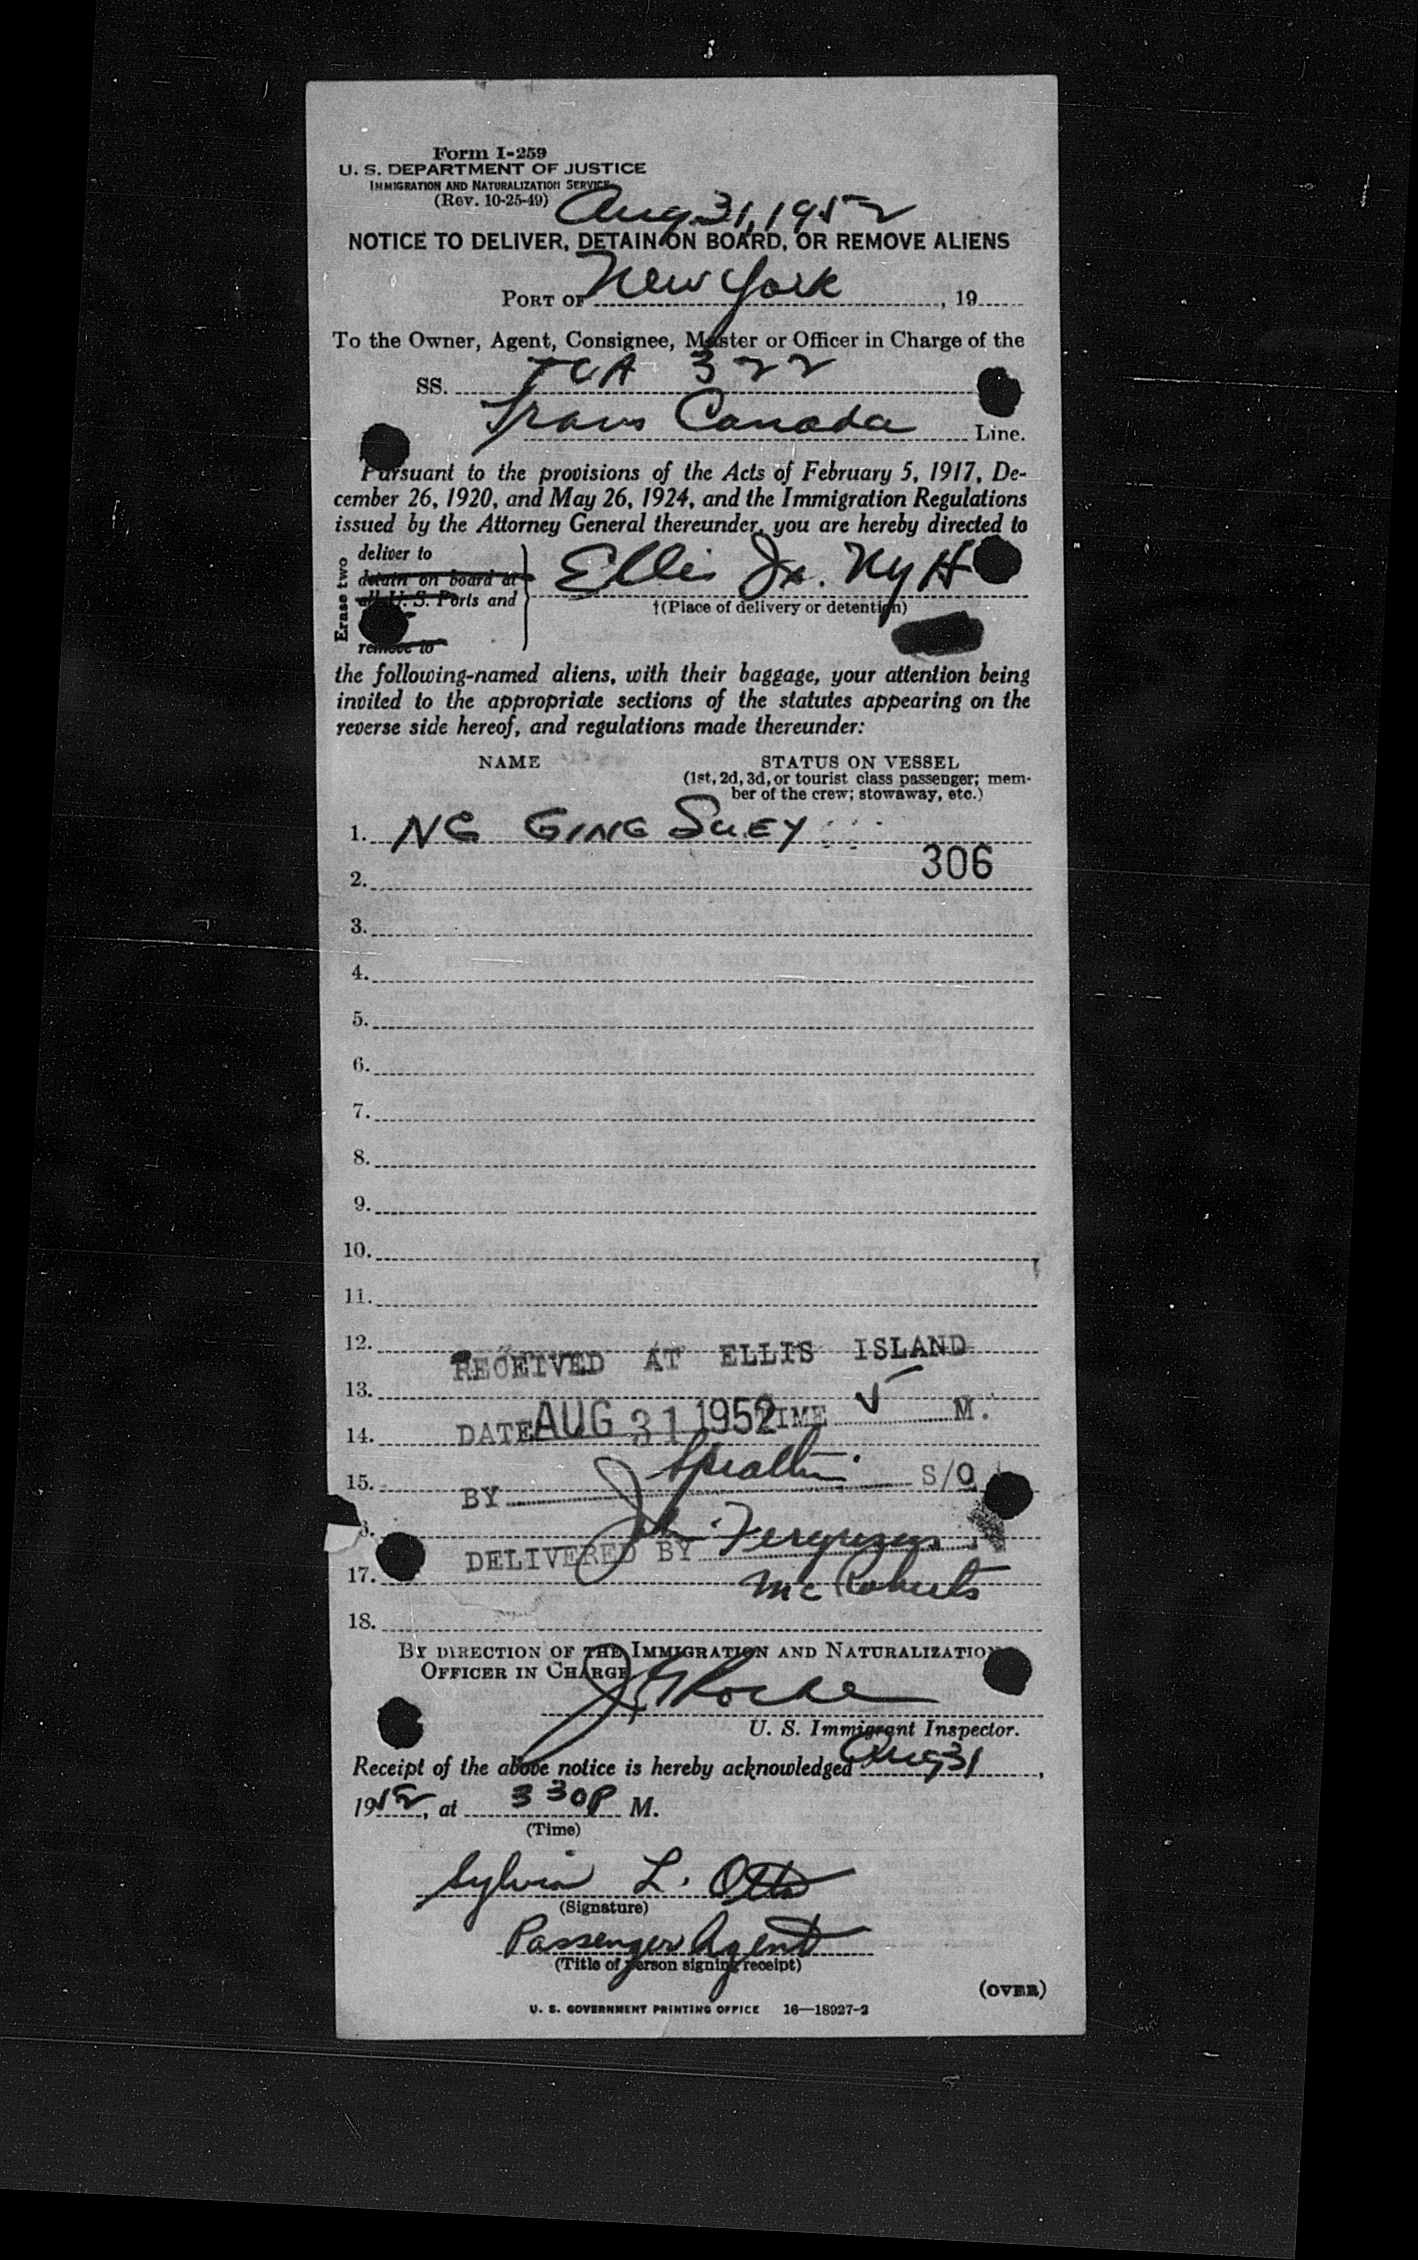 Form I-259
U. S. DEPARTMENT OF JUSTICE
IMMIGRATION AND NATURALIZATION SERVICE
(Rev. 10-25-49)
Aug 31, 1952
NOTICE TO DELIVER, DETAIN ON BOARD, OR REMOVE ALIENS
PORT OF New York, 19
To the Owner, Agent, Consignee, Master or Officer in Charge of the
SS. TCA 322
Trans Canada Line.
Pursuant to the provisions of the Acts of February 5, 1917, De-
cember 26, 1920, and May 26, 1924, and the Immigration Regulations
issued by the Attorney General thereunder, you are hereby directed to
Erase two
deliver to
detain on board at
all U. S. Ports and
remove to
Ellis Is. NyH
†(Place of delivery or detention)
the following-named aliens, with their baggage, your attention being
invited to the appropriate sections of the statutes appearing on the
reverse side hereof, and regulations made thereunder:
NAME STATUS ON VESSEL
(1st, 2d, 3d, or tourist class passenger; mem-
ber of the crew; stowaway, etc.)
1. NG GING SUEY
306
2.
3.
4.
5.
6.
7.
8.
9.
10.
11.
12.
RECEIVED AT ELLIS ISLAND
13.
14. DATE AUG 31 1952 TIME M.
15.
BY S/O
DELIVERED BY Ferguson
17. McRoberts
18.
BY DIRECTION OF THE IMMIGRATION AND NATURALIZATION
OFFICER IN CHARGE
Roche
U. S. Immigrant Inspector.
Receipt of the above notice is hereby acknowledged Aug 31,
1952, at 3 30 P M.
(Time)
Sylvia L. Otto
(Signature)
Passenger Agent
(Title of person signing receipt)
(OVER)
U. S. GOVERNMENT PRINTING OFFICE 16—18927-2